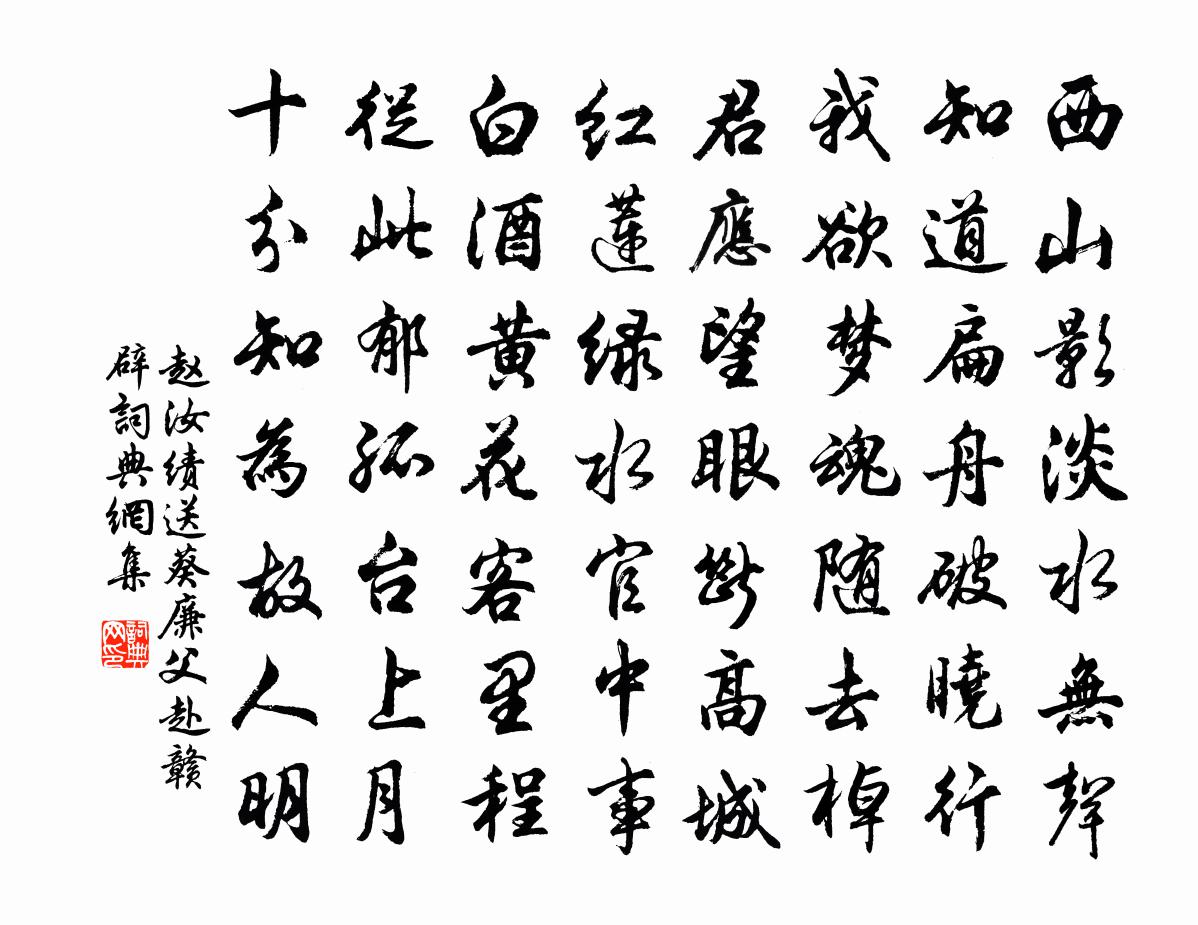 西山影淡水無聲
知道扁舟破曉行
我欲梦魂随去棹
君應望眼斷高城
红蓮绿水官中事
白酒黄花客里程
從此郁孤台上月
十分知為故人明
赵汝绩送葵廉父赴赣
辟詞典網集
詞典网印